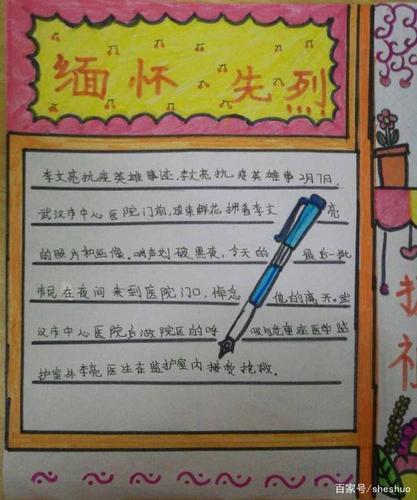 缅怀先烈
李文亮抗疫英雄事迹.李文亮抗疫英雄事2月7日,
武汉市中心医院门前,束鲜花拥着李文亮
的照片和画像。哨声划破黑夜,今天的最后一批
市民在夜间来到医院门口,悼念他的离开。武
汉市中心医院后湖院区的呼吸与危重症医学监
护室外李亮医生在监护室内接受抢救。
百家号/sheshuo